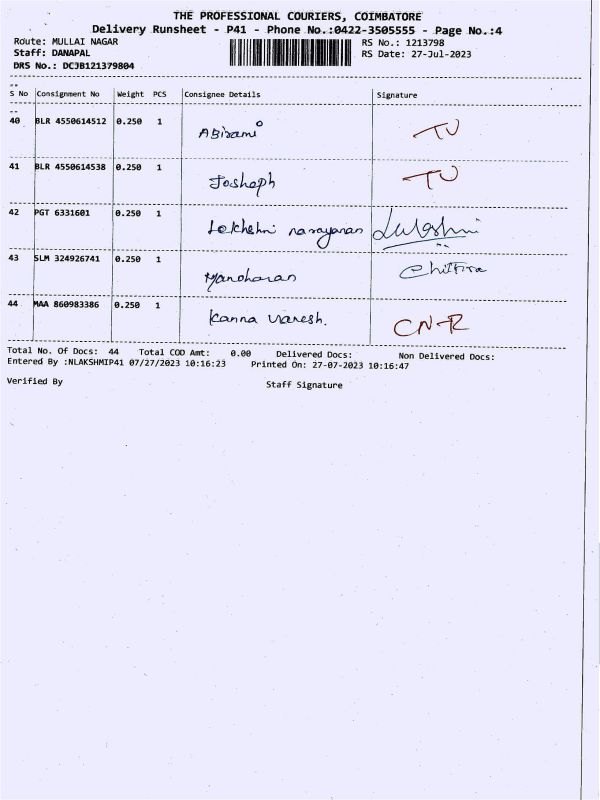 THE PROFESSIONAL COURIERS, COIMBATORE
Delivery Runsheet - P41 - Phone No.:0422-3505555 - Page No.:4
Route: MULLAI NAGAR RS No.: 1213798
Staff: DANAPAL RS Date: 27-Jul-2023
DRS No.: DCJB121379804
S No Consignment No Weight PCS Consignee Details Signature
40 BLR 4550614512 0.250 1 Abirami TV
41 BLR 4550614538 0.250 1 Joshaph TV
42 PGT 6331601 0.250 1 narayanan
43 SLM 324926741 0.250 1 Manoharan Chittra
44 MAA 860983386 0.250 1 Kanna Varesh. CN-R
Total No. Of Docs: 44 Total COD Amt: 0.00 Delivered Docs: Non Delivered Docs:
Entered By :NLAKSHMIP41 07/27/2023 10:16:23 Printed On: 27-07-2023 10:16:47
Verified By Staff Signature